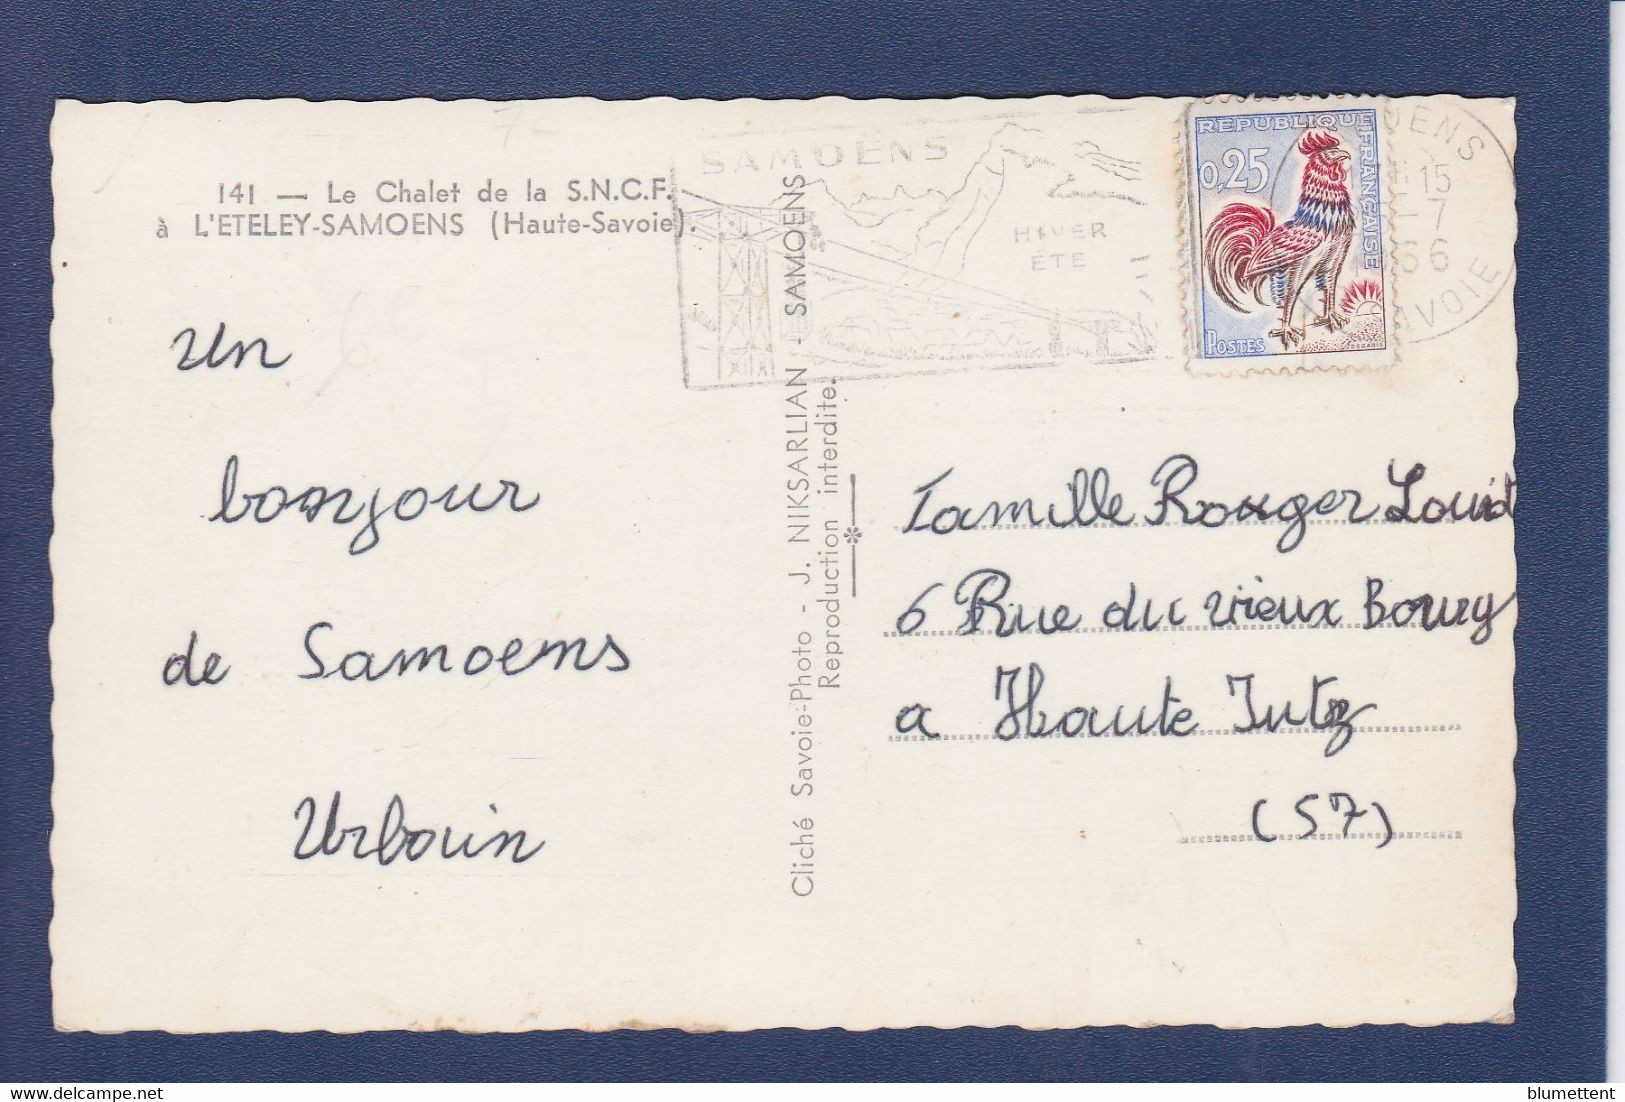 141 — Le Chalet de la S.N.C.F.
à L'ETELEY-SAMOENS (Haute-Savoie).
Un
bonjour
de Samoens
Urbain
SAMOËNS
HIVER
ETE
Cliché Savoie-Photo - J. NIKSARLIAN - SAMOENS
Reproduction interdite.
REPUBLIQUE FRANÇAISE
0,25
POSTES
15
-7
66
Famille Rouger Louis
6 Rue du vieux Bourg
a Haute Yutz
(57)
blumettent